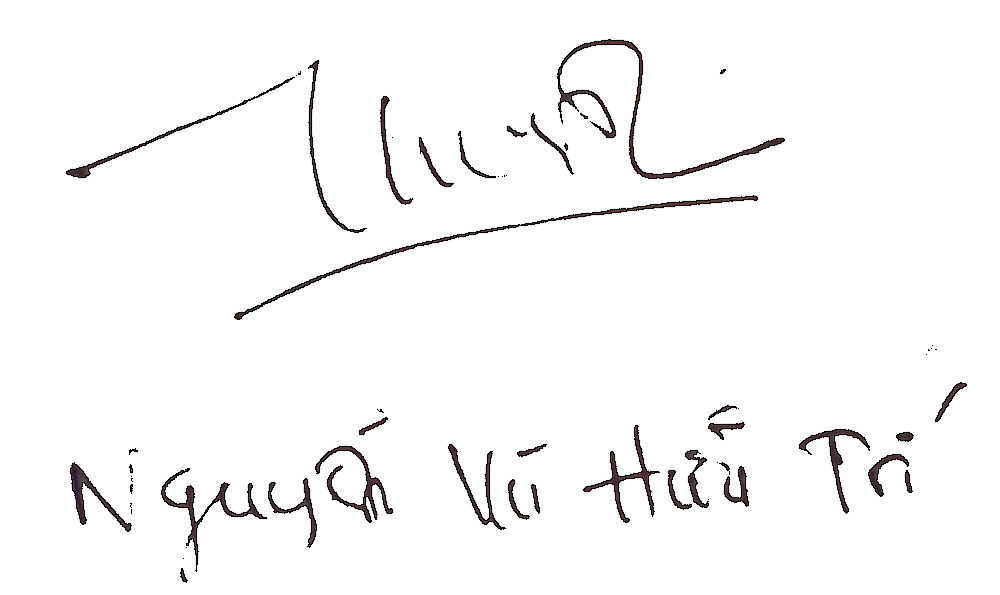 Nguyễn Vũ Hữu Trí